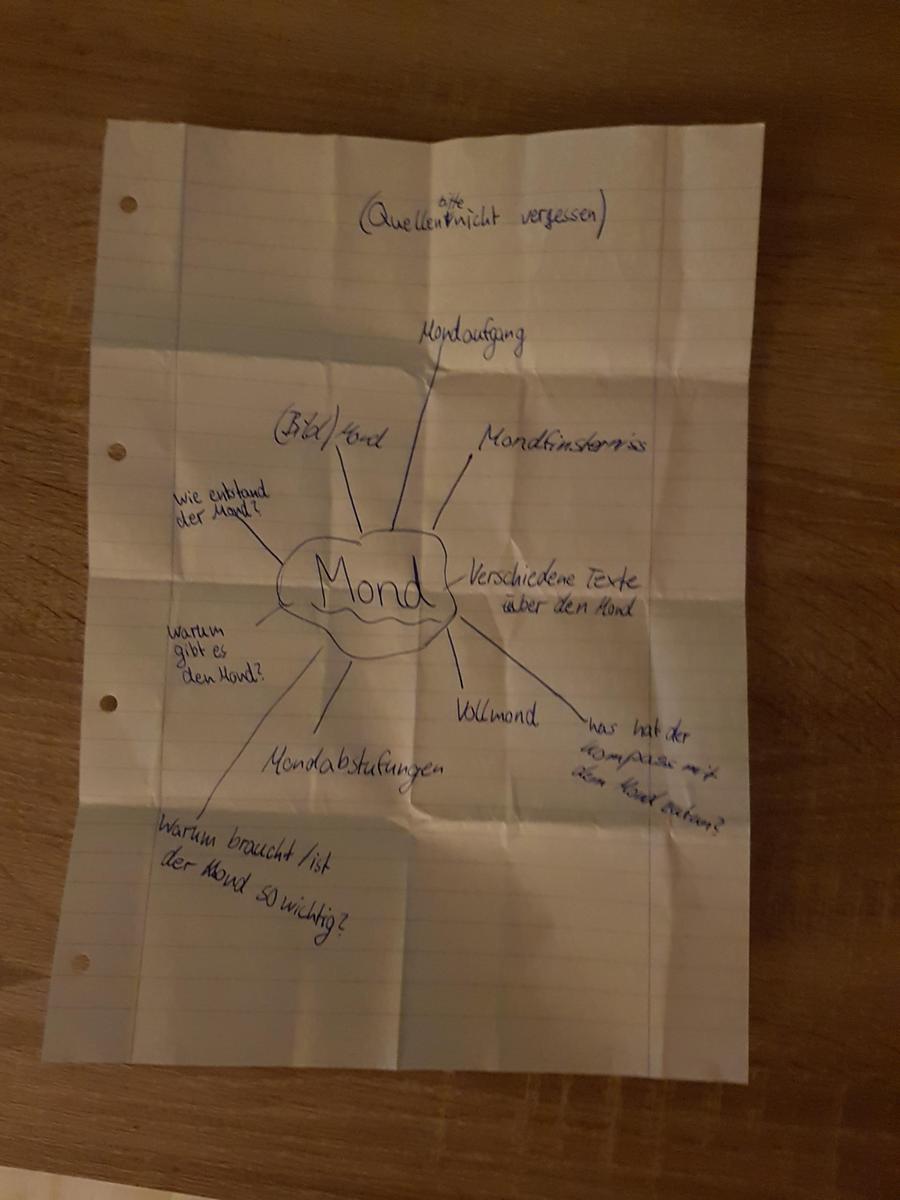 (Quellen bitte nicht vergessen)
Mondaufgang
(Bild) Mond
Mondfinsterniss
wie entstand
der Mond?
Mond
Verschiedene Texte
über den Mond
warum
gibt es
den Mond?
Vollmond
was hat der
Kompass mit
dem Mond zutun?
Mondabstufungen
Warum braucht/ist
der Mond so wichtig?